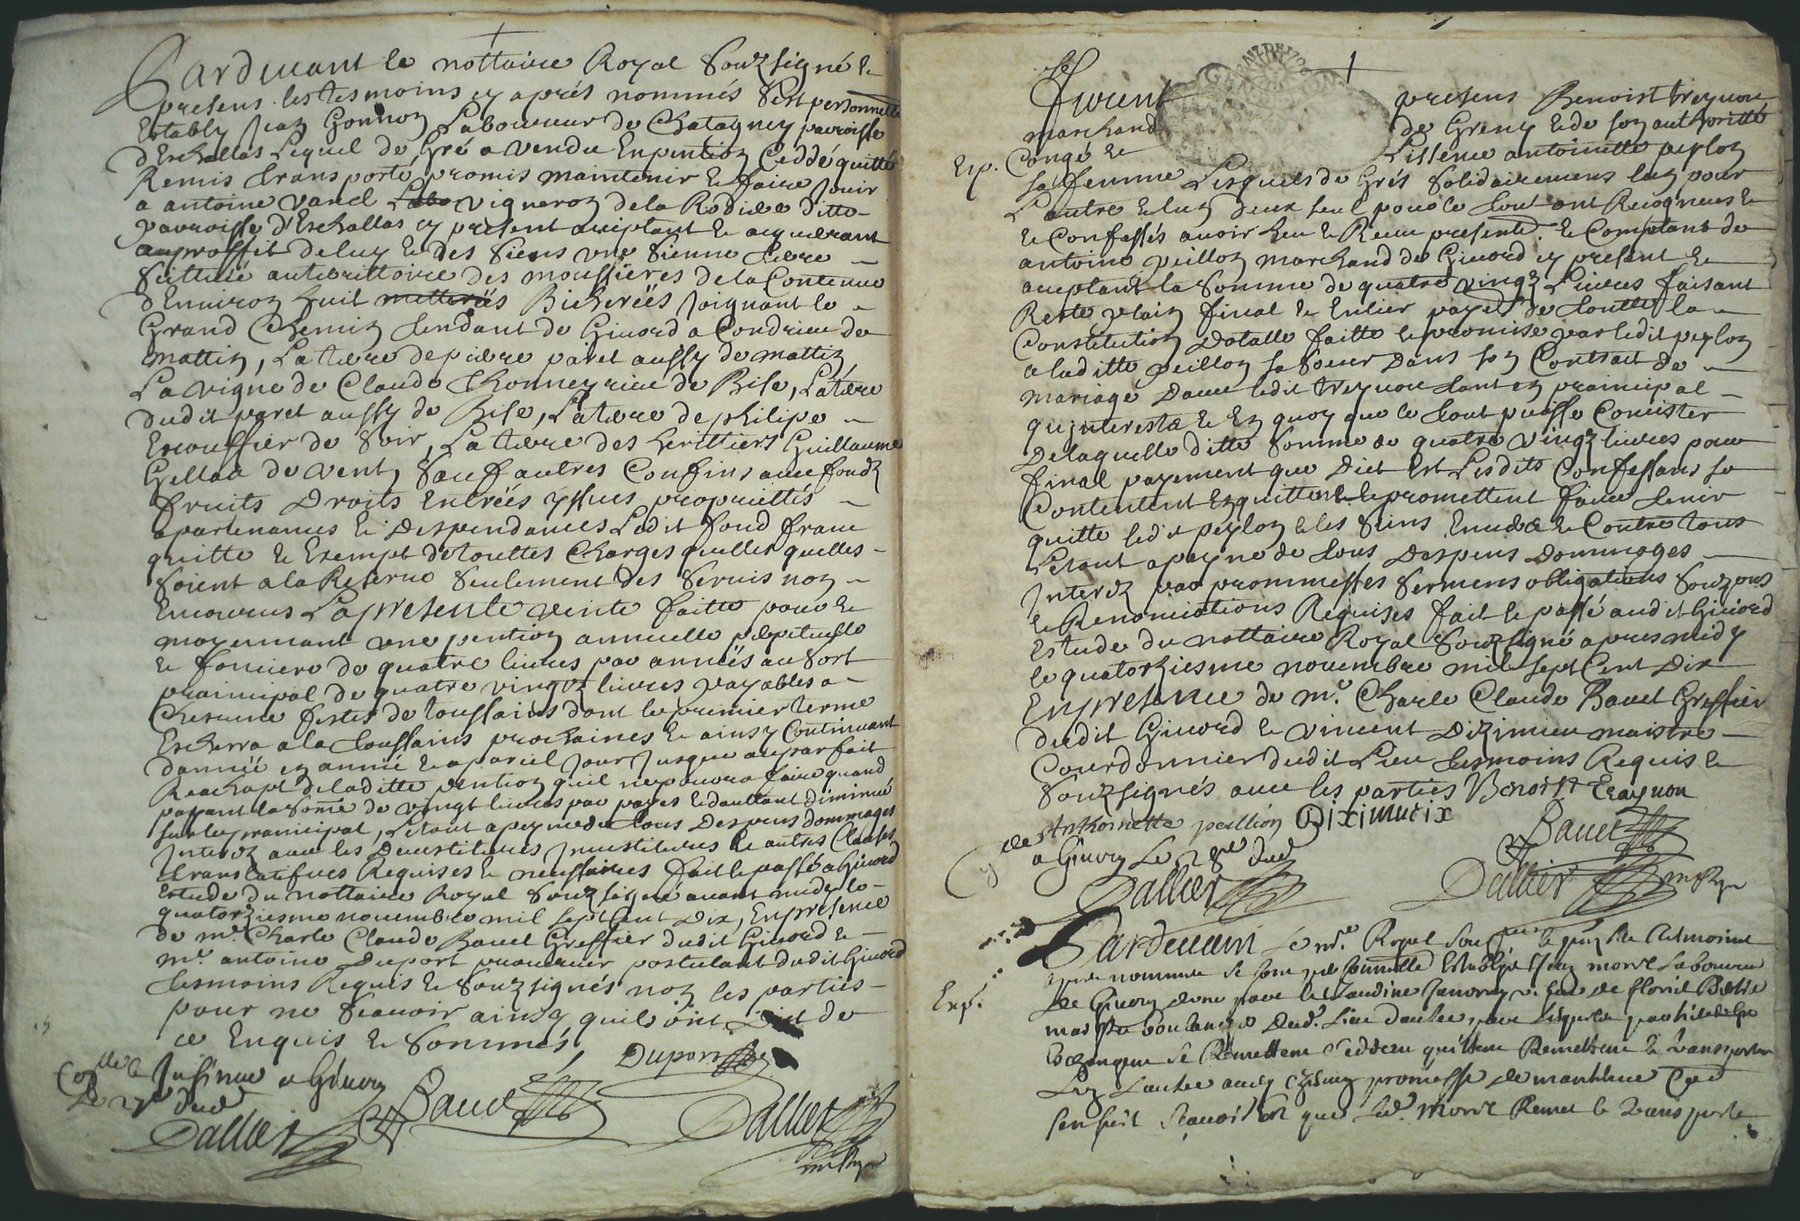 Pardevant le nottaire Royal Souzsigné &
presens les tesmoins cy aprés nommés s'est personnellemt
Estably Jean Gonnon Laboureur de Chatagney parroisse
d'Eschallas Lequel de Gré a vendu En pention Ceddé quitté
Remis transporté promis maintenir & faire Jouir
a antoine varel vigneron de la Rodiere ditte
parroisse d'Eschallas cy present aceptant & acquerant
au proffit de luy & des Siens une Sienne terre
Scittuée au territtoire des moussieres de la Contenue
d'Environ huit Bicherées Joignant le
Grand Chemin tendant de Givord a Condrieu de
mattin, La terre de pierre varel aussy de mattin
La vigne de Claude de Bise, La terre
dudit varel aussy de Bise, La terre de philipe
Escouffier de Soir, La terre des herittiers Guillaume
de vent, Sauf autres Confins avec fondz
fruits Droits Entrées yssues proprietés
apartenances & Despendances Ledit fond franc
quitte & Exempt de touttes Charges quelles quelles
Soient a la Reserve Seulement des Servis non
Encourus La presente vente faitte pour &
moyennant une pention annuelle perpetuelle
& fonciere de quatre livres par années au Sort
principal de quatre vingtz livres payables a
Chescune festes de toussaints dont le premier terme
Escherra a la toussaints prochaines & ainsy Continuant
d'année en année & a pareil Jour Jusques au parfait
Reachapt de laditte pention qu'il ne pourra faire quand
payant la some de vingt livres par payes & d'auttant diminué
sur le principal, Letout a peyne de tous Despens dommages
Interez avec les Devestitures Investitures & autres Clauses
translatifves Requises & necessaires fait & passé a Givord
Estude du nottaire Royal Souzsigné avant midy le
quatorziesme novembre mil sept Cent Dix, En presence
de me. Charle Claude Bauet Greffier dudit Givord &
me. antoine Duport procureur postulant dudit Givord
tesmoins Requis & Souzsignés non les parties
pour ne Scavoir ainsy qu'ils ont Dit de
ce Enquis & Sommés,
Duport
Insinue a Givors
Bauet
Dallier
Dallier
Furent presens Benoist treynon
marchand de Greny & de son authoritté
Exp. Congé & Licence antoinette peylon
sa femme Lesquels de Grés Solidairement lun pour
L'autre & lun deux seul pour le tout ont Recogneus &
& Confessés avoir heu & Receu presente. & Comptant de
antoine peillon marchand de Givord cy present &
aceptant la Somme de quatre vingz Livres faisant
Reste plain final & Entier payet. de toutte la
Constitution Dotalle faitte & promise par ledit peylon
a laditte peillon sa soeur Dans son Contrait de
mariage avec ledit treynon tant en prainicipal
qu'interestz & En quoy que le tout puisse Concister
De laquelle ditte Somme de quatre vingz livres pour
final payement que Dict Est Lesdits Confessans se
Contentent En quittent & promettent faire tenir
quitte ledit peylon & les Siens Envers & Contre tous
Letout a peyne de tous Despens Dommages
Interez par prommesses Sermens obligations Souzons
& Renonciations Requises fait & passé audit Givord
Estude du nottaire Royal Souzsigné apres midy
le quatorziesme novembre mil sept Cent Dix
En presence de me. Charle Claude Bauet Greffier
dudit Givord & vincent Diximieu maistre
Courdonnier dudit Lieu tesmoins Requis &
Souzsignés avec les parties Benoist treynon
Anthoinette peillion Diximieux
Bauet
a Givors Le 28e dud
Dallier
Dallier
Pardevant Le ne. Royal & presens les tesmoins
apres nommes se sont Establys Jean morel Laboureur
Exp. de Givors dune part &
maistre boulanger dud. Lieu dautre part Lesquels
Eschangent se Remettent ceddent quittent Remettent & transportent
Lun Lautre avec promesse de maintenir
Scavoir est que Led. morel Remet & transporte